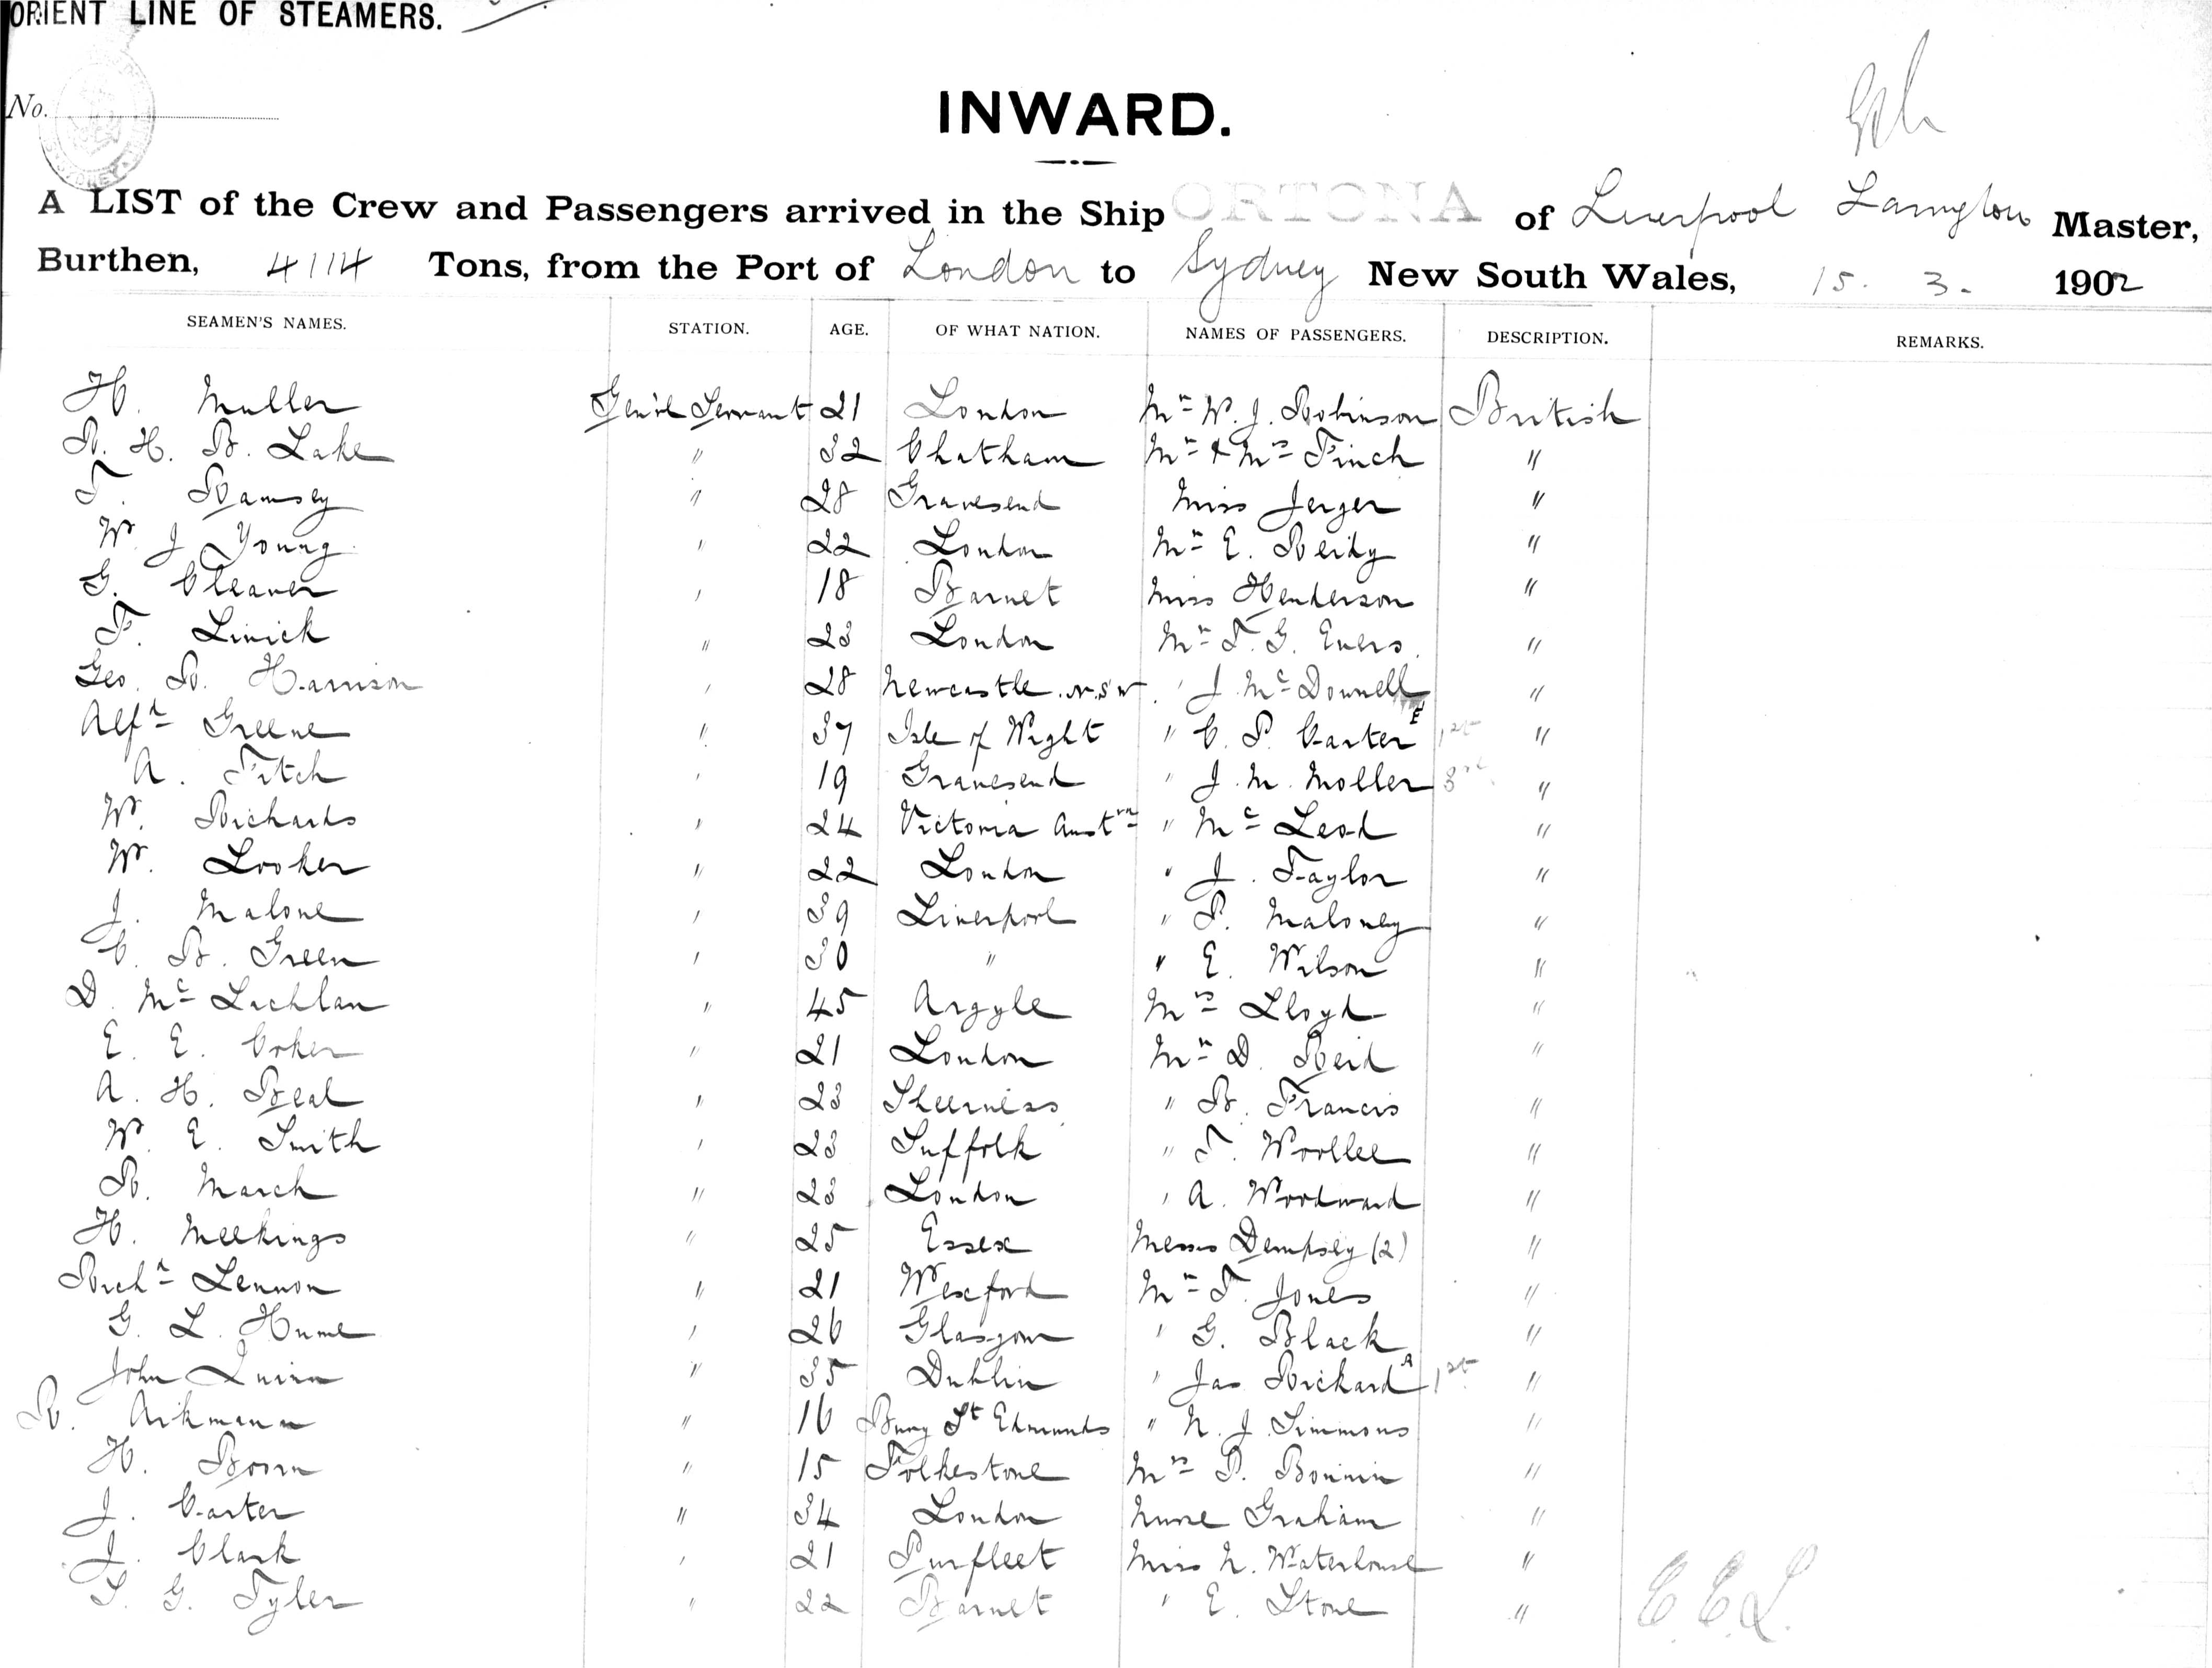 ORIENT LINE OF STEAMERS.
No.
INWARD.
A LIST of the Crew and Passengers arrived in the Ship ORTONA of Liverpool Master,
Burthen, 4114 Tons, from the Port of London to Sydney New South Wales, 15. 3. 1902
SEAMEN'S NAMES. STATION. AGE. OF WHAT NATION. NAMES OF PASSENGERS. DESCRIPTION. REMARKS.
H. Muller Gen'l Servant 21 London Mr W. J. Robinson British
R. H. B. Lake " 32 Chatham Mr & Mrs Finch "
T. Ramsey " 28 Gravesend Miss Jerger "
W. J Young " 22 London Mr E. Reidy "
G. Cleaver " 18 Barnet Miss Henderson "
F. Linick " 23 London Mr T. G. Evers. "
Geo. R. Harrison " 28 Newcastle. N.S.W. " J. McDonnell "
Alfd Greene " 37 Isle of Wight " C. P. Carter E 1st "
A. Fitch " 19 Gravesend " J. M. Moller 3rd "
W. Richards " 24 Victoria Austrn " McLeod "
W. Looker " 22 London " J. Taylor "
J. Malone " 39 Liverpool " P. Maloney "
C. B. Green " 30 " " E. Wilson "
D. McLachlan " 45 Argyle Mrs Lloyd "
E. E. Coker " 21 London Mr D. Reid "
A. H. Beal " 23 Sheerness " B. Francis "
W. E. Smith " 23 Suffolk " T. Woollee "
R. March " 23 London " A. Woodward "
H. Meekings " 25 Essex Messrs Dempsey (2) "
Richd Lennon " 21 Wexford Mr T. Jones "
G. L. Hume " 26 Glasgow " G. Black "
John Quinn " 35 Dublin " Jas Rickard A 1st "
R. Aikmann " 16 Bury St Edmunds " N. J. Simmons "
H. Boorn " 15 Folkestone Mrs P. Bonnin "
J. Carter " 34 London Nurse Graham "
J. Clark " 21 Purfleet Miss N. Waterhouse "
S. G. Tyler " 22 Barnet " E. Stone "